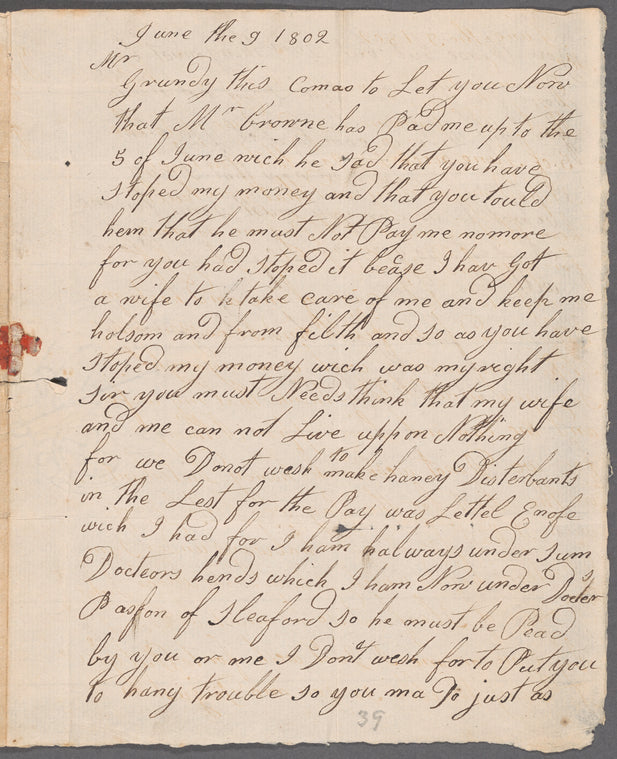 June the 9 1802
Mr
Grundy this Comas to Let you Now
that Mr Browne has Pad me up to the
5 of June wich he sad that you have
stoped my money and that you tould
hem that he must Not Pay me nomore
for you had stoped it becase I hav Got
a wife to take care of me and keep me
holsom and from filth and so as you have
stoped my money wich was my right
sir you must Needs think that my wife
and me can not Live uppon Nothing
for we Donot wesh to make haney Disterbants
in the Lest for the Pay was Lettel Enofe
wich I had for I ham halways under sum
Docteors hends which I ham Now under Docters
of Sleaford so he must be Pead
by you or me I Dont wesh forto Put you
to hany trouble so you ma Do just as
39